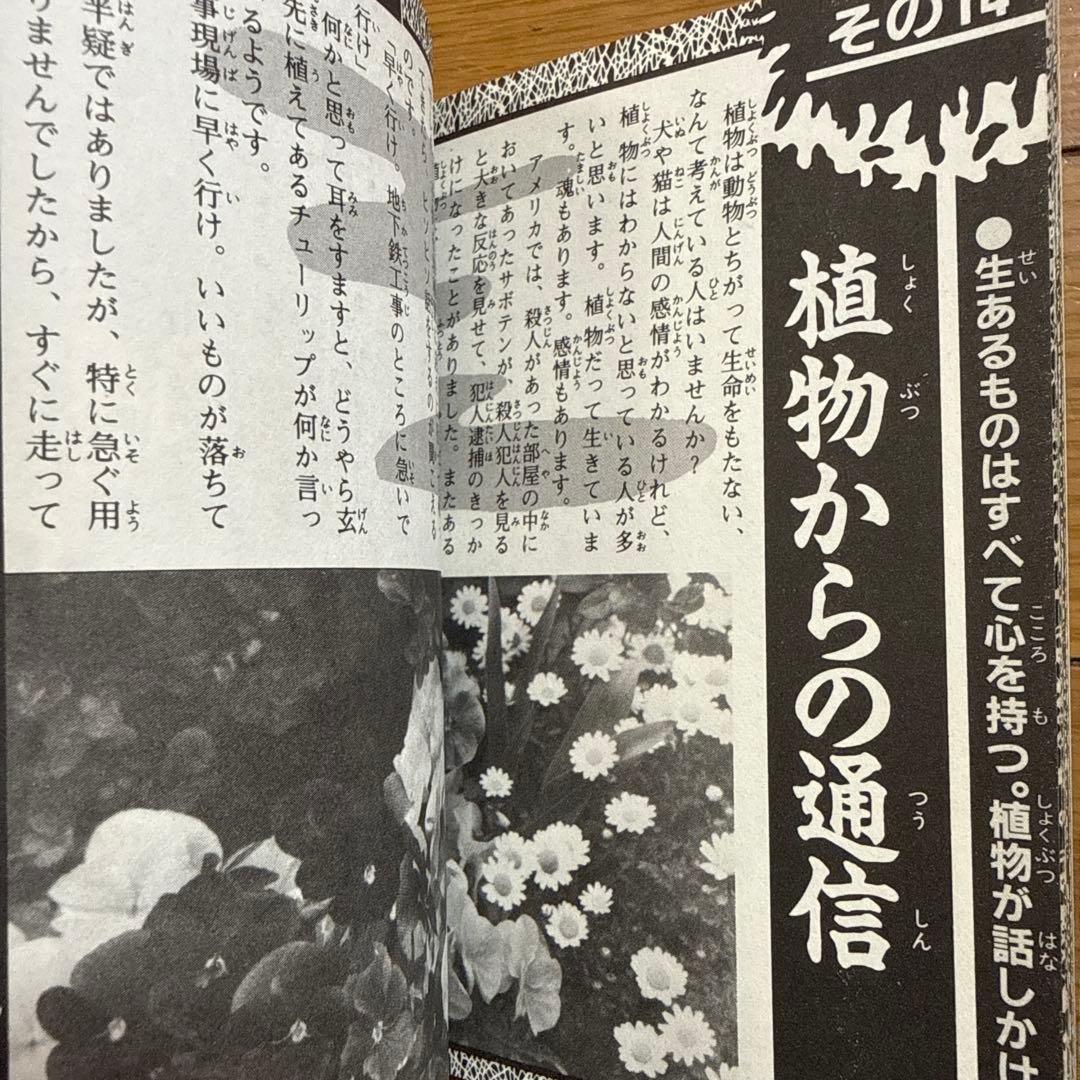 その14
●生あるものはすべて心を持つ。植物が話しかけ
植物からの通信
植物は動物とちがって生命をもたない、
なんて考えている人はいませんか?
犬や猫は人間の感情がわかるけれど、
植物にはわからないと思っている人が多
いと思います。植物だって生きていま
す。魂もあります。感情もあります。
アメリカでは、殺人があった部屋の中に
おいてあったサボテンが、殺人犯人を見る
と大きな反応を見せて、犯人逮捕のきっか
けになったことがありました。またある
のです。
「早く行け。地下鉄工事のところに急いで
行け」
何かと思って耳をすますと、どうやら玄
先に植えてあるチューリップが何か言っ
るようです。
事現場に早く行け。いいものが落ちて
半疑ではありましたが、特に急ぐ用
りませんでしたから、すぐに走って